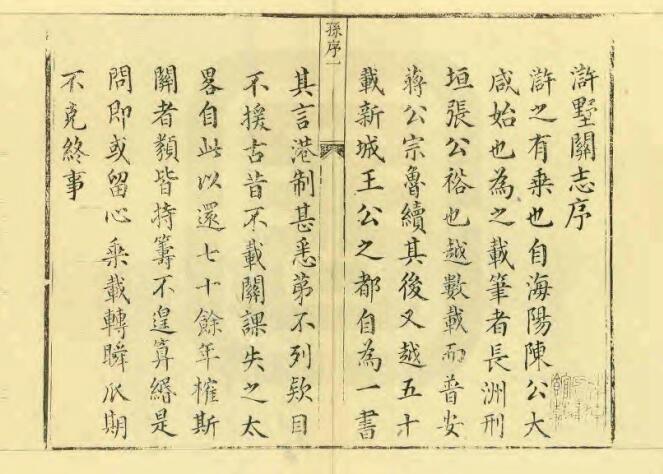 滸墅關志序
滸之有乗也自海陽陳公大
咸始也為之載筆者長洲刑
垣張公裕也越數載而普安
蔣公宗魯續其後又越五十
載新城王公之都自為一書
孫序一
其言港制甚悉苐不列欵目
不援古昔不載關課失之太
畧自此以還七十餘年榷斯
關者纇皆持籌不遑算緡是
問即或留心乗載轉瞬瓜期
不克終事